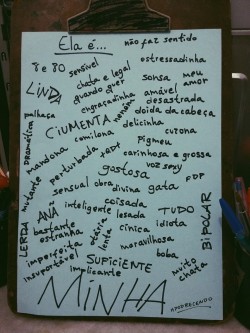 Ela é...
não faz sentido
8 e 80
sensível
estressadinha
chata e legal
quando quer
sonsa
meu amor
LINDA
engraçadinha
amável
palhaça
desastrada
CIUMENTA
neném
doida da cabeça
dramática
comilona
delicinha
curona
mandona
pigmeu
perturbada
carinhosa e grossa
mutante
gostosa
voz sexy
sensual
obra divina
gata
FDP
LERDA
ANÃ
coisada
inteligente
lesada
TUDO
BIPOLAR
bastante estranha
otária
cínica
idiota
linda
maravilhosa
imperfeita
insuportável
SUFICIENTE
boba
implicante
muito chata
MINHA
APODRECENDO